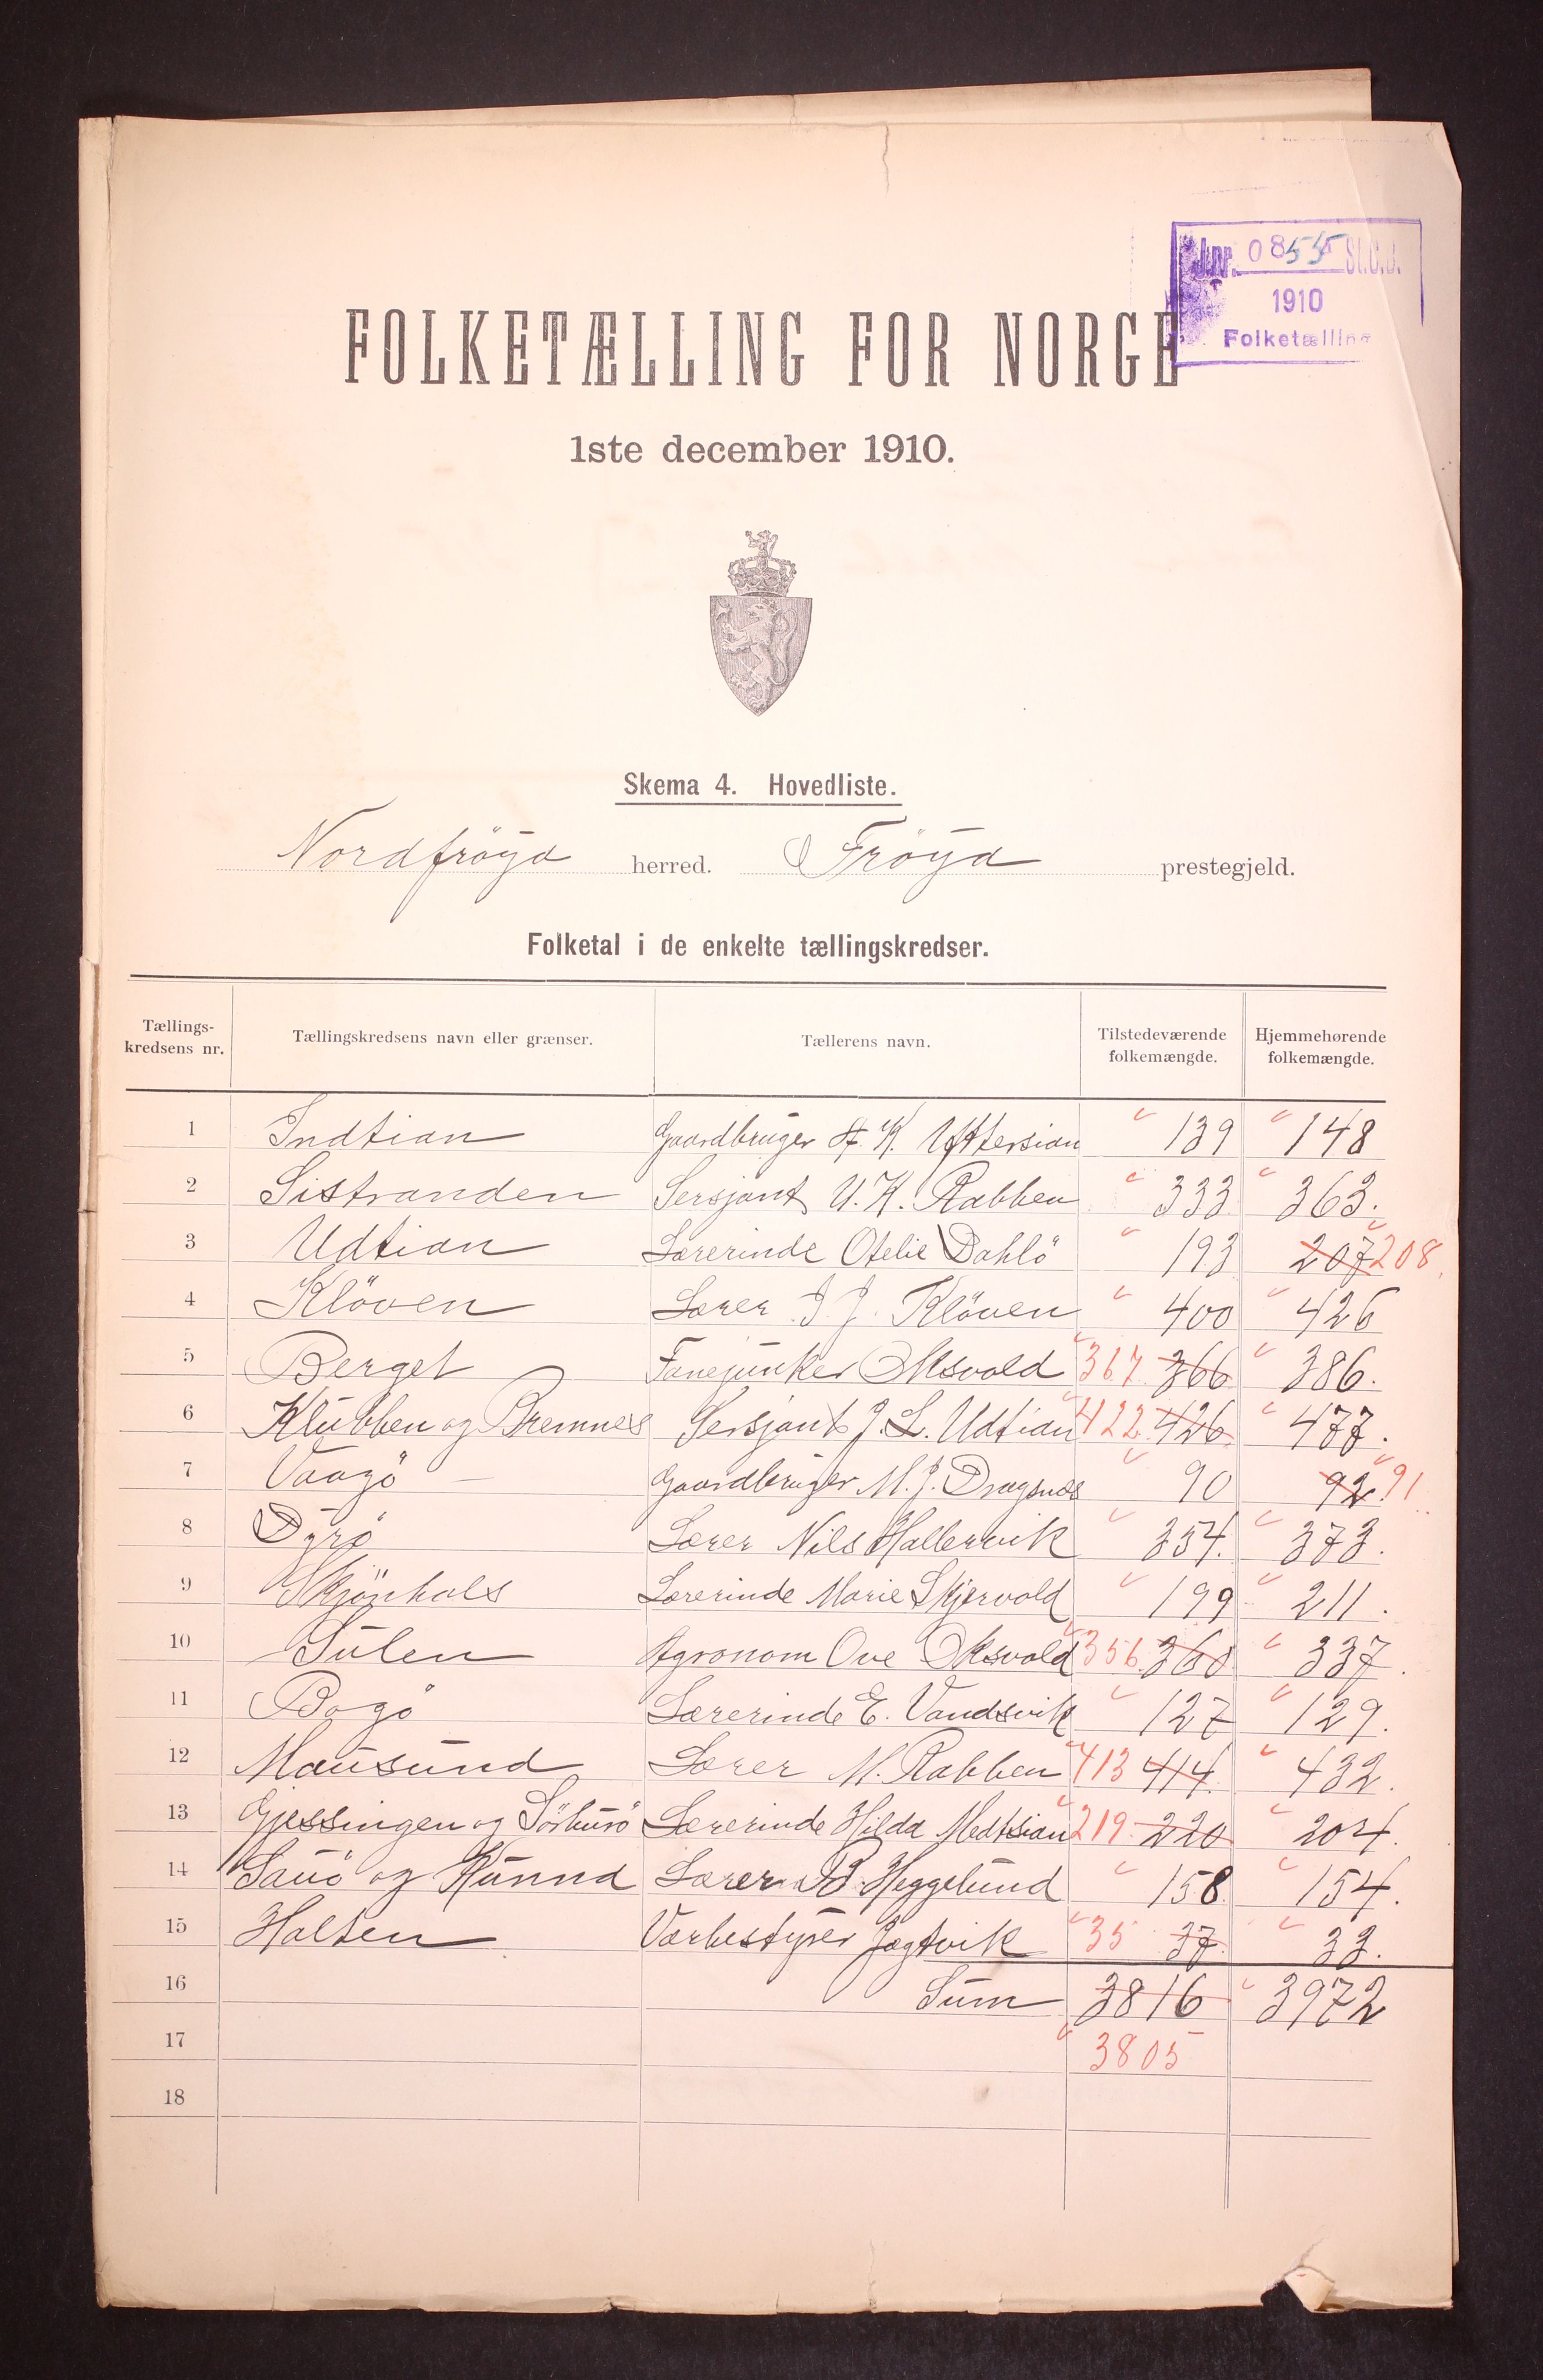 J.nr. 0855 St.C.B.
1910
Folketælling
FOLKETÆLLING FOR NORGE
1ste december 1910.
Skema 4. Hovedliste.
Nordfröya herred. Fröya prestegjeld.
Folketal i de enkelte tællingskredser.
Tællings-kredsens nr. Tællingskredsens navn eller grænser. Tællerens navn. Tilstedeværende folkemængde. Hjemmehørende folkemængde.
1 Indtian Gaardbruger H. K. Yttersian 139 148
2 Sistranden Sersjant U. K. Rabben 333 363.
3 Udtian Lærerinde Otelie Dahlö 193 207 208.
4 Klöven Lærer J. J. Klöven 400 426
5 Berget Fanejunker Oksvold 367 366 386.
6 Klubben og Bremnes Sersjant J. L. Udtian 422 426 477.
7 Vaagö Gaardbruger M. J. Dragsnes 90 92. 91
8 Dyrö Lærer Nils Hallervik 354. 373.
9 Skjönhals Lærerinde Marie Skjervold 199 211.
10 Sulen Agronom Ove Oksvold 356 360 337.
11 Bogö Lærerinde E. Vandsvik 127 129.
12 Mausund Lærer M. Rabben 413 414. 432.
13 Gjessingen og Sörburö Lærerinde Hilda Medtsian 219 220 204.
14 Sauö og Kunna Lærer B. Heggelund 158 154.
15 Halten Værbestyrer Jægtvik 35 37. 33.
16 Sum 3816 3972
17 3805
18